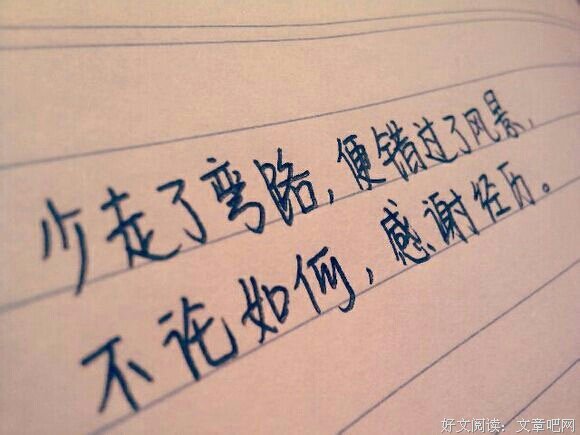 少走了弯路,便错过了风景,
不论如何,感谢经历。
好文阅读:文章吧网